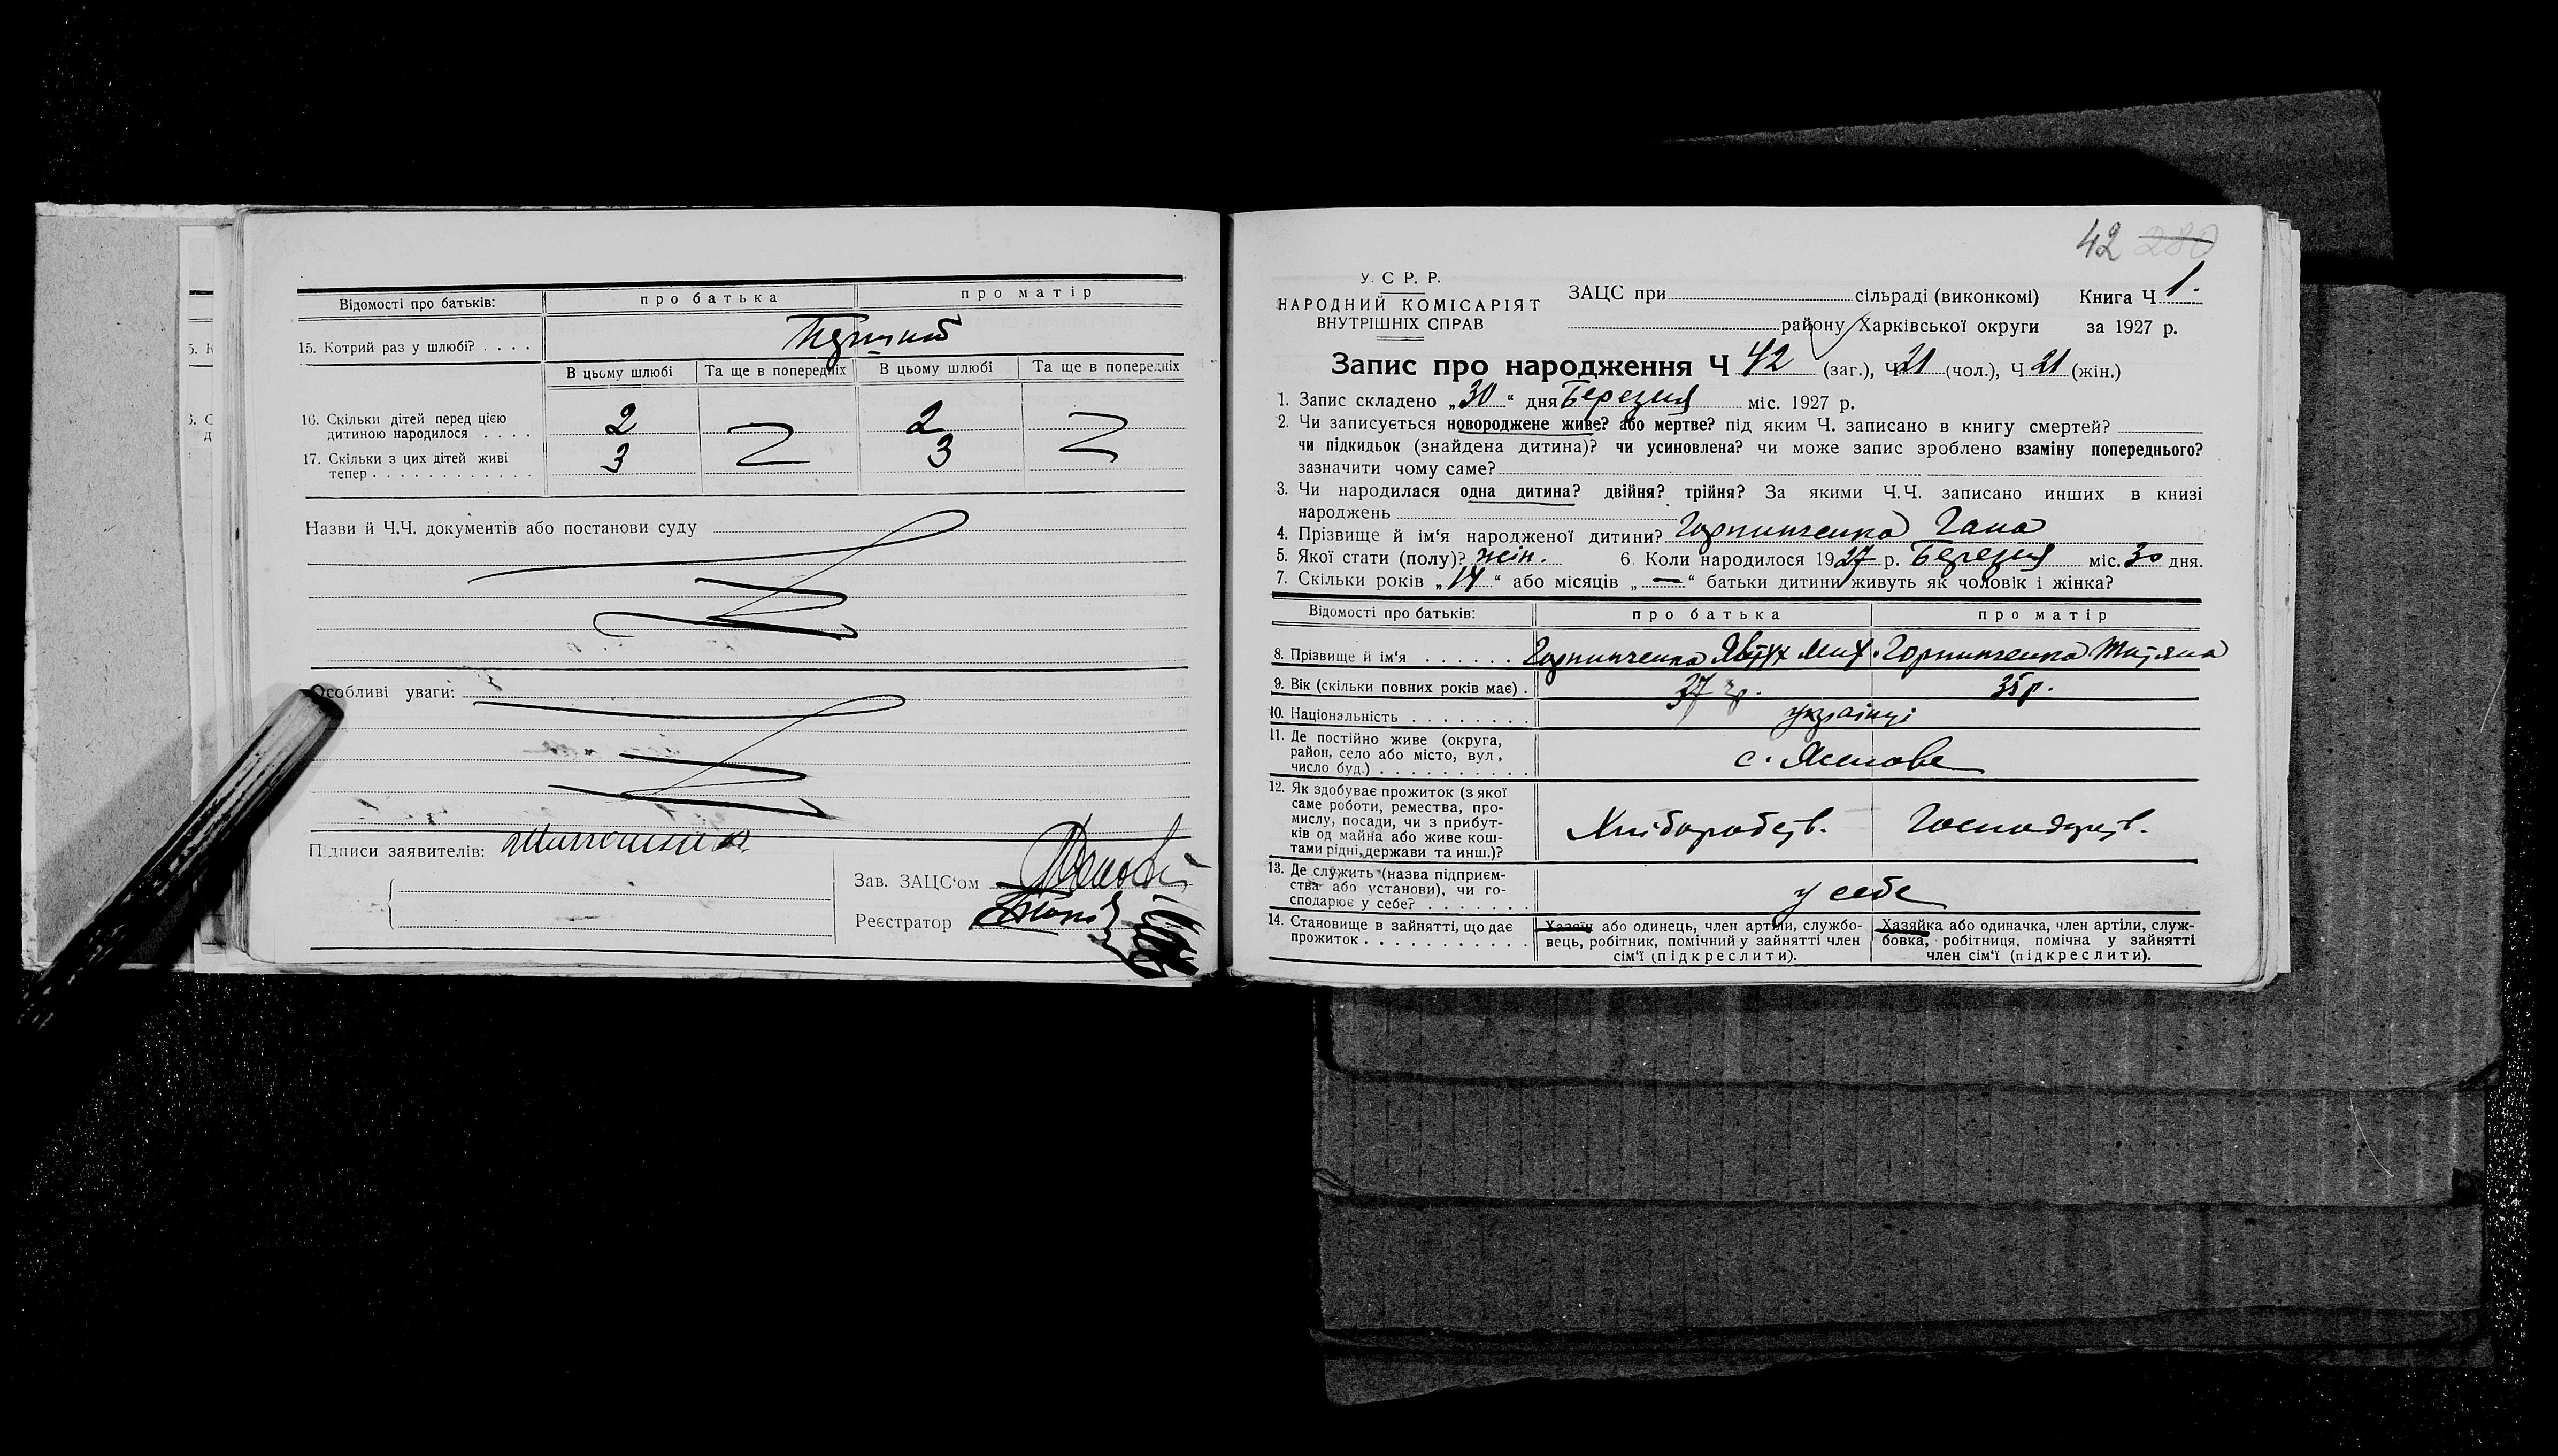 Відомості про батьків: про батька про матір
15. Котрий раз у шлюбі? . . . .
В цьому шлюбі Та ще в попередніх В цьому шлюбі Та ще в попередніх
16. Скільки дітей перед цією
дитиною народилося . . . . 2 2
17. Скільки з цих дітей живі
тепер . . . . . . . . . . . . 3 3
Назви й Ч.Ч. документів або постанови суду
Особливі уваги:
Підписи заявителів:
Зав. ЗАЦС‘ом
Реєстратор
42 280
У. С Р. Р.
НАРОДНИЙ КОМІСАРІЯТ
ВНУТРІШНІХ СПРАВ
ЗАЦС при сільраді (виконкомі) Книга Ч 1.
району Харківської округи за 1927 р.
Запис про народження Ч 42 (заг.), Ч 21 (чол.), Ч 21 (жін.)
1. Запис складено „30“ дня Березня міс. 1927 р.
2. Чи записується новороджене живе? або мертве? під яким Ч. записано в книгу смертей?
чи підкидьок (знайдена дитина)? чи усиновлена? чи може запис зроблено взаміну попереднього?
зазначити чому саме?
3. Чи народилася одна дитина? двійня? трійня? За якими Ч.Ч. записано инших в книзі
народжень
4. Прізвище й ім‘я народженої дитини? Горпинченко Гана
5. Якої стати (полу)? жін. 6. Коли народилося 1927 р. Березня міс. 30 дня.
7. Скільки років „14“ або місяців „—“ батьки дитини живуть як чоловік і жінка?
Відомості про батьків: про батька про матір
8. Прізвище й ім‘я . . . . . . Горпинченко Явтух Мих. Горпинченко Титяна
9. Вік (скільки повних років має) . 37 р. 35 р.
10. Національність . . . . . . . . українці
11. Де постійно живе (округа,
район, село або місто, вул,
число буд.) . . . . . . . . . . с. Ясенове
12. Як здобуває прожиток (з якої
саме роботи, ремества, про-
мислу, посади, чи з прибут-
ків од майна або живе кош-
тами рідні, держави та инш.)? Хліборобств. Господарств.
13. Де служить (назва підприєм-
ства або установи), чи го-
сподарює у себе? . . . . . . . у себе
14. Становище в зайнятті, що дає
прожиток . . . . . . . . . . .
Хазяїн або одинець, член артіли, службо-
вець, робітник, помічний у зайнятті член
сім‘ї (підкреслити).
Хазяйка або одиначка, член артіли, служ-
бовка, робітниця, помічна у зайнятті
член сім‘ї (підкреслити).